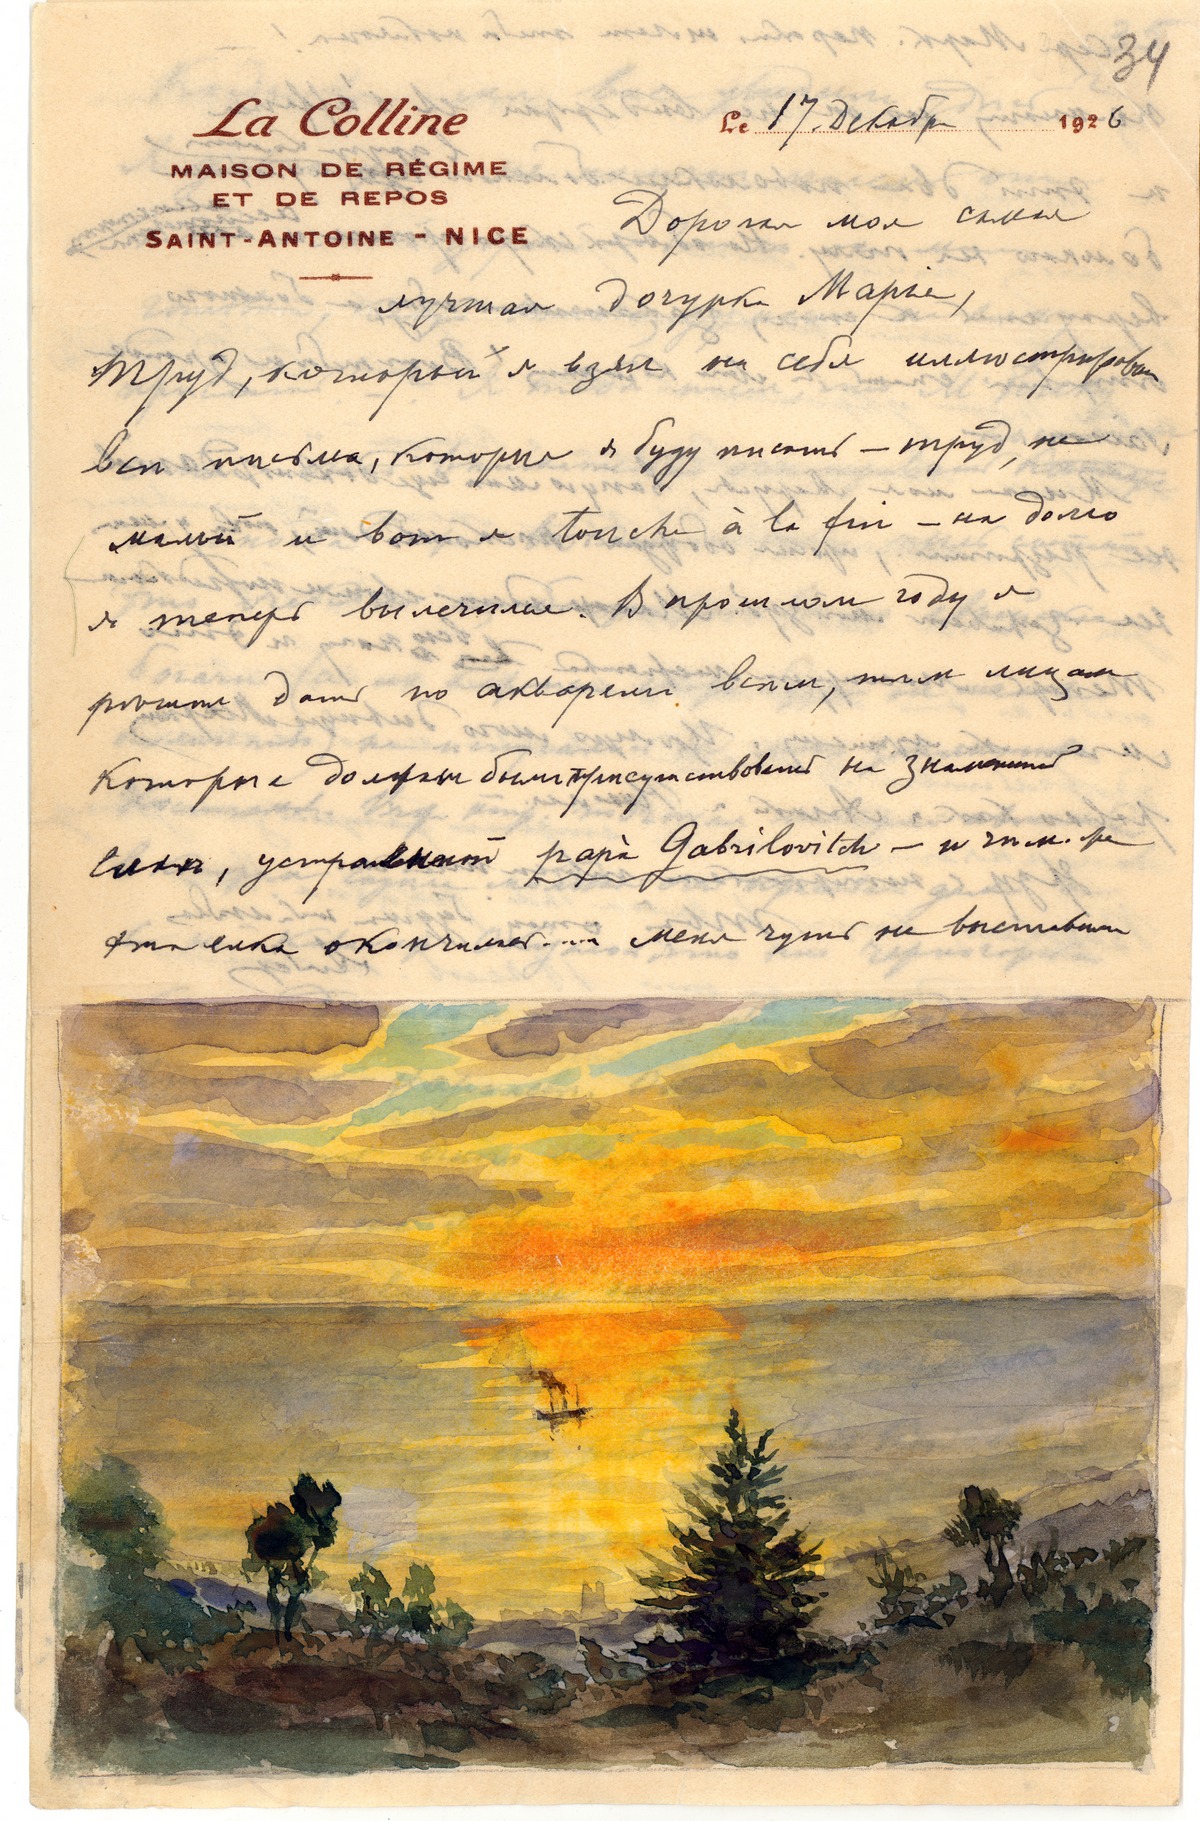 34
La Colline
MAISON DE RÉGIME
ET DE REPOS
SAINT-ANTOINE - NICE
Le 17 Декабря 1926
Дорогая моя самая
лучшая дочурка Марья,
Труд, который я взял на себя иллюстрировать
все письма, которые я буду писать — труд не
малый и вот я touche à la fin — на долго
я теперь вылечился. В прошлом году я
решил дать по акварели всем, тем лицам
которые должны были присутствовать на знаменитой
елке, papà Gabrilovitch —
эта елка окончилась.... меня чуть не выставили